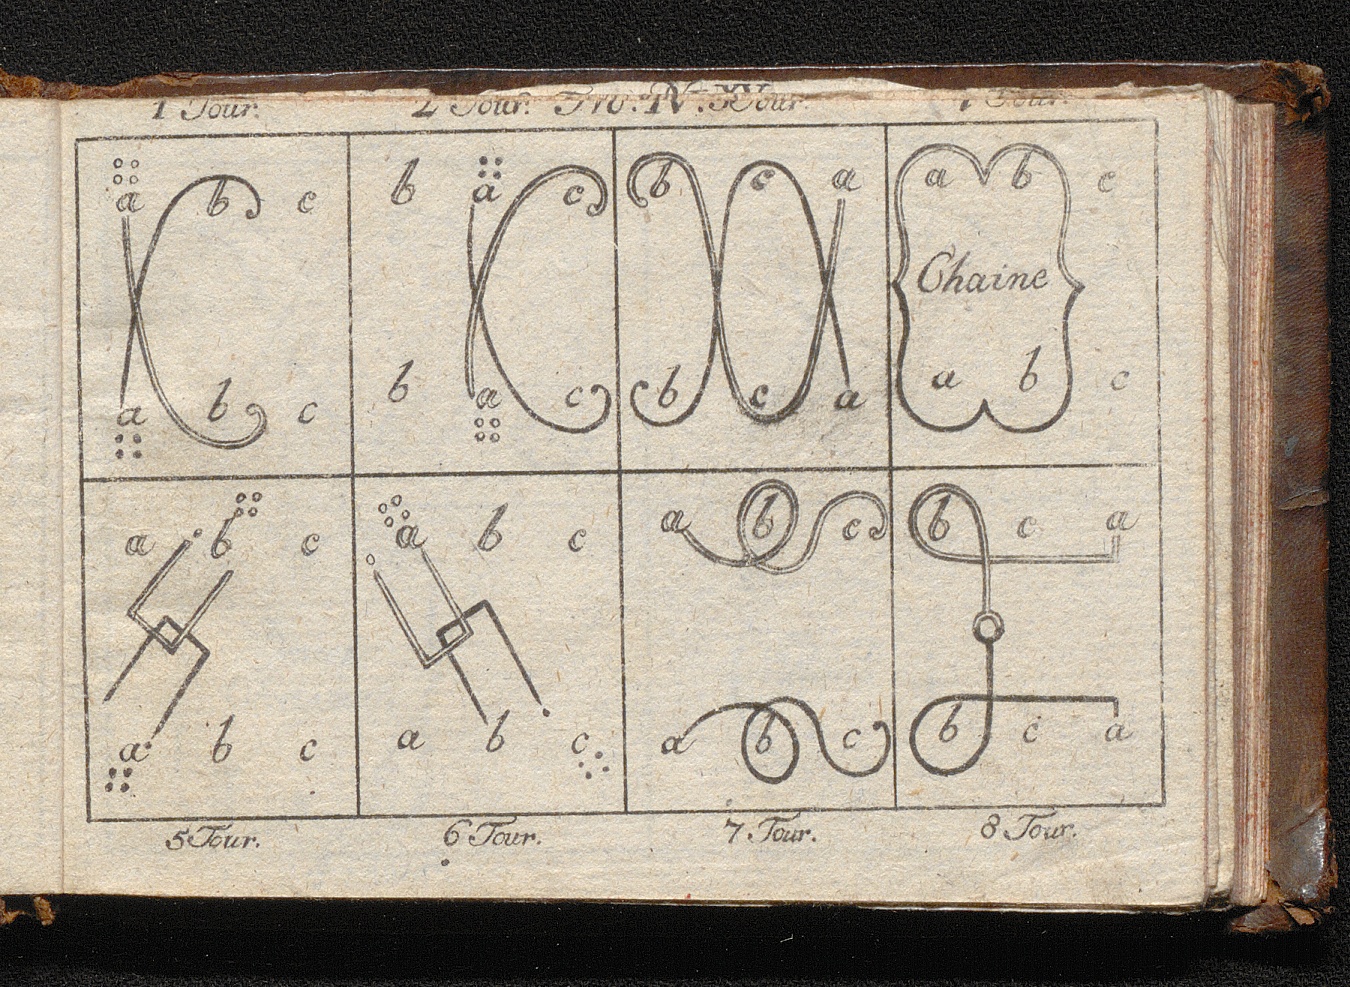 1 Tour. 2 Tour. Tour. Tour.
a b c b a c b c a a b c
Chaine
a b c b a c b c a a b c
a b c a b c a b c b c a
a b c a b c a b c b c a
5 Tour. 6 Tour. 7 Tour. 8 Tour.